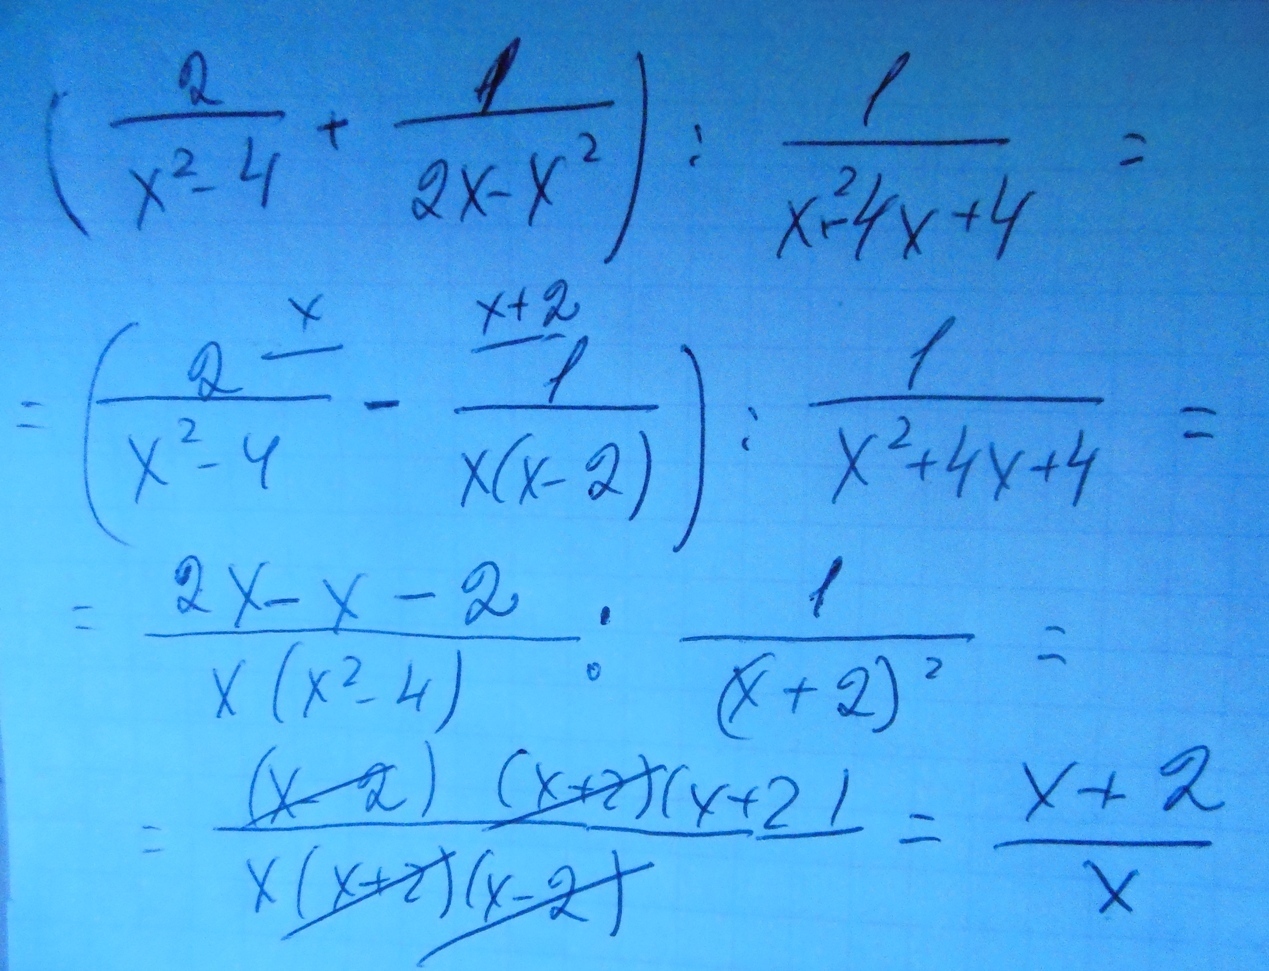 (2/(x² - 4) + 1/(2x - x²)) : 1/(x² + 4x + 4) =
= (2 x/(x² - 4) - 1 x+2/(x(x - 2))) : 1/(x² + 4x + 4) =
= (2x - x - 2)/(x(x² - 4)) : 1/(x + 2)² =
= (x - 2)(x + 2)(x + 2)/(x(x + 2)(x - 2)) = (x + 2)/x